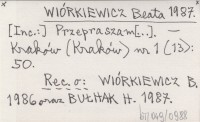 WIÓRKIEWICZ Beata 1987.
[Inc.:] Przepraszam[..]. —
Kraków (Kraków) nr 1 (13):
50.
Rec. o: WIÓRKIEWICZ B.
1986 oraz BUŁHAK H. 1987.